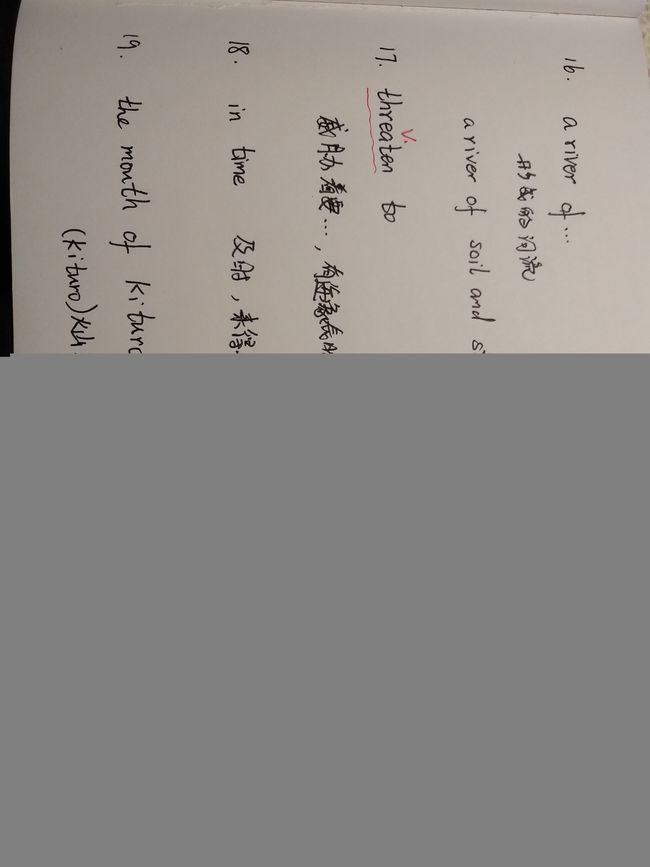 16. a river of...
形成的河流
a river of soil and
17. threaten to
v.
威胁着要..., 构
18. in time 及时,来得
19. the month of
(kituro)